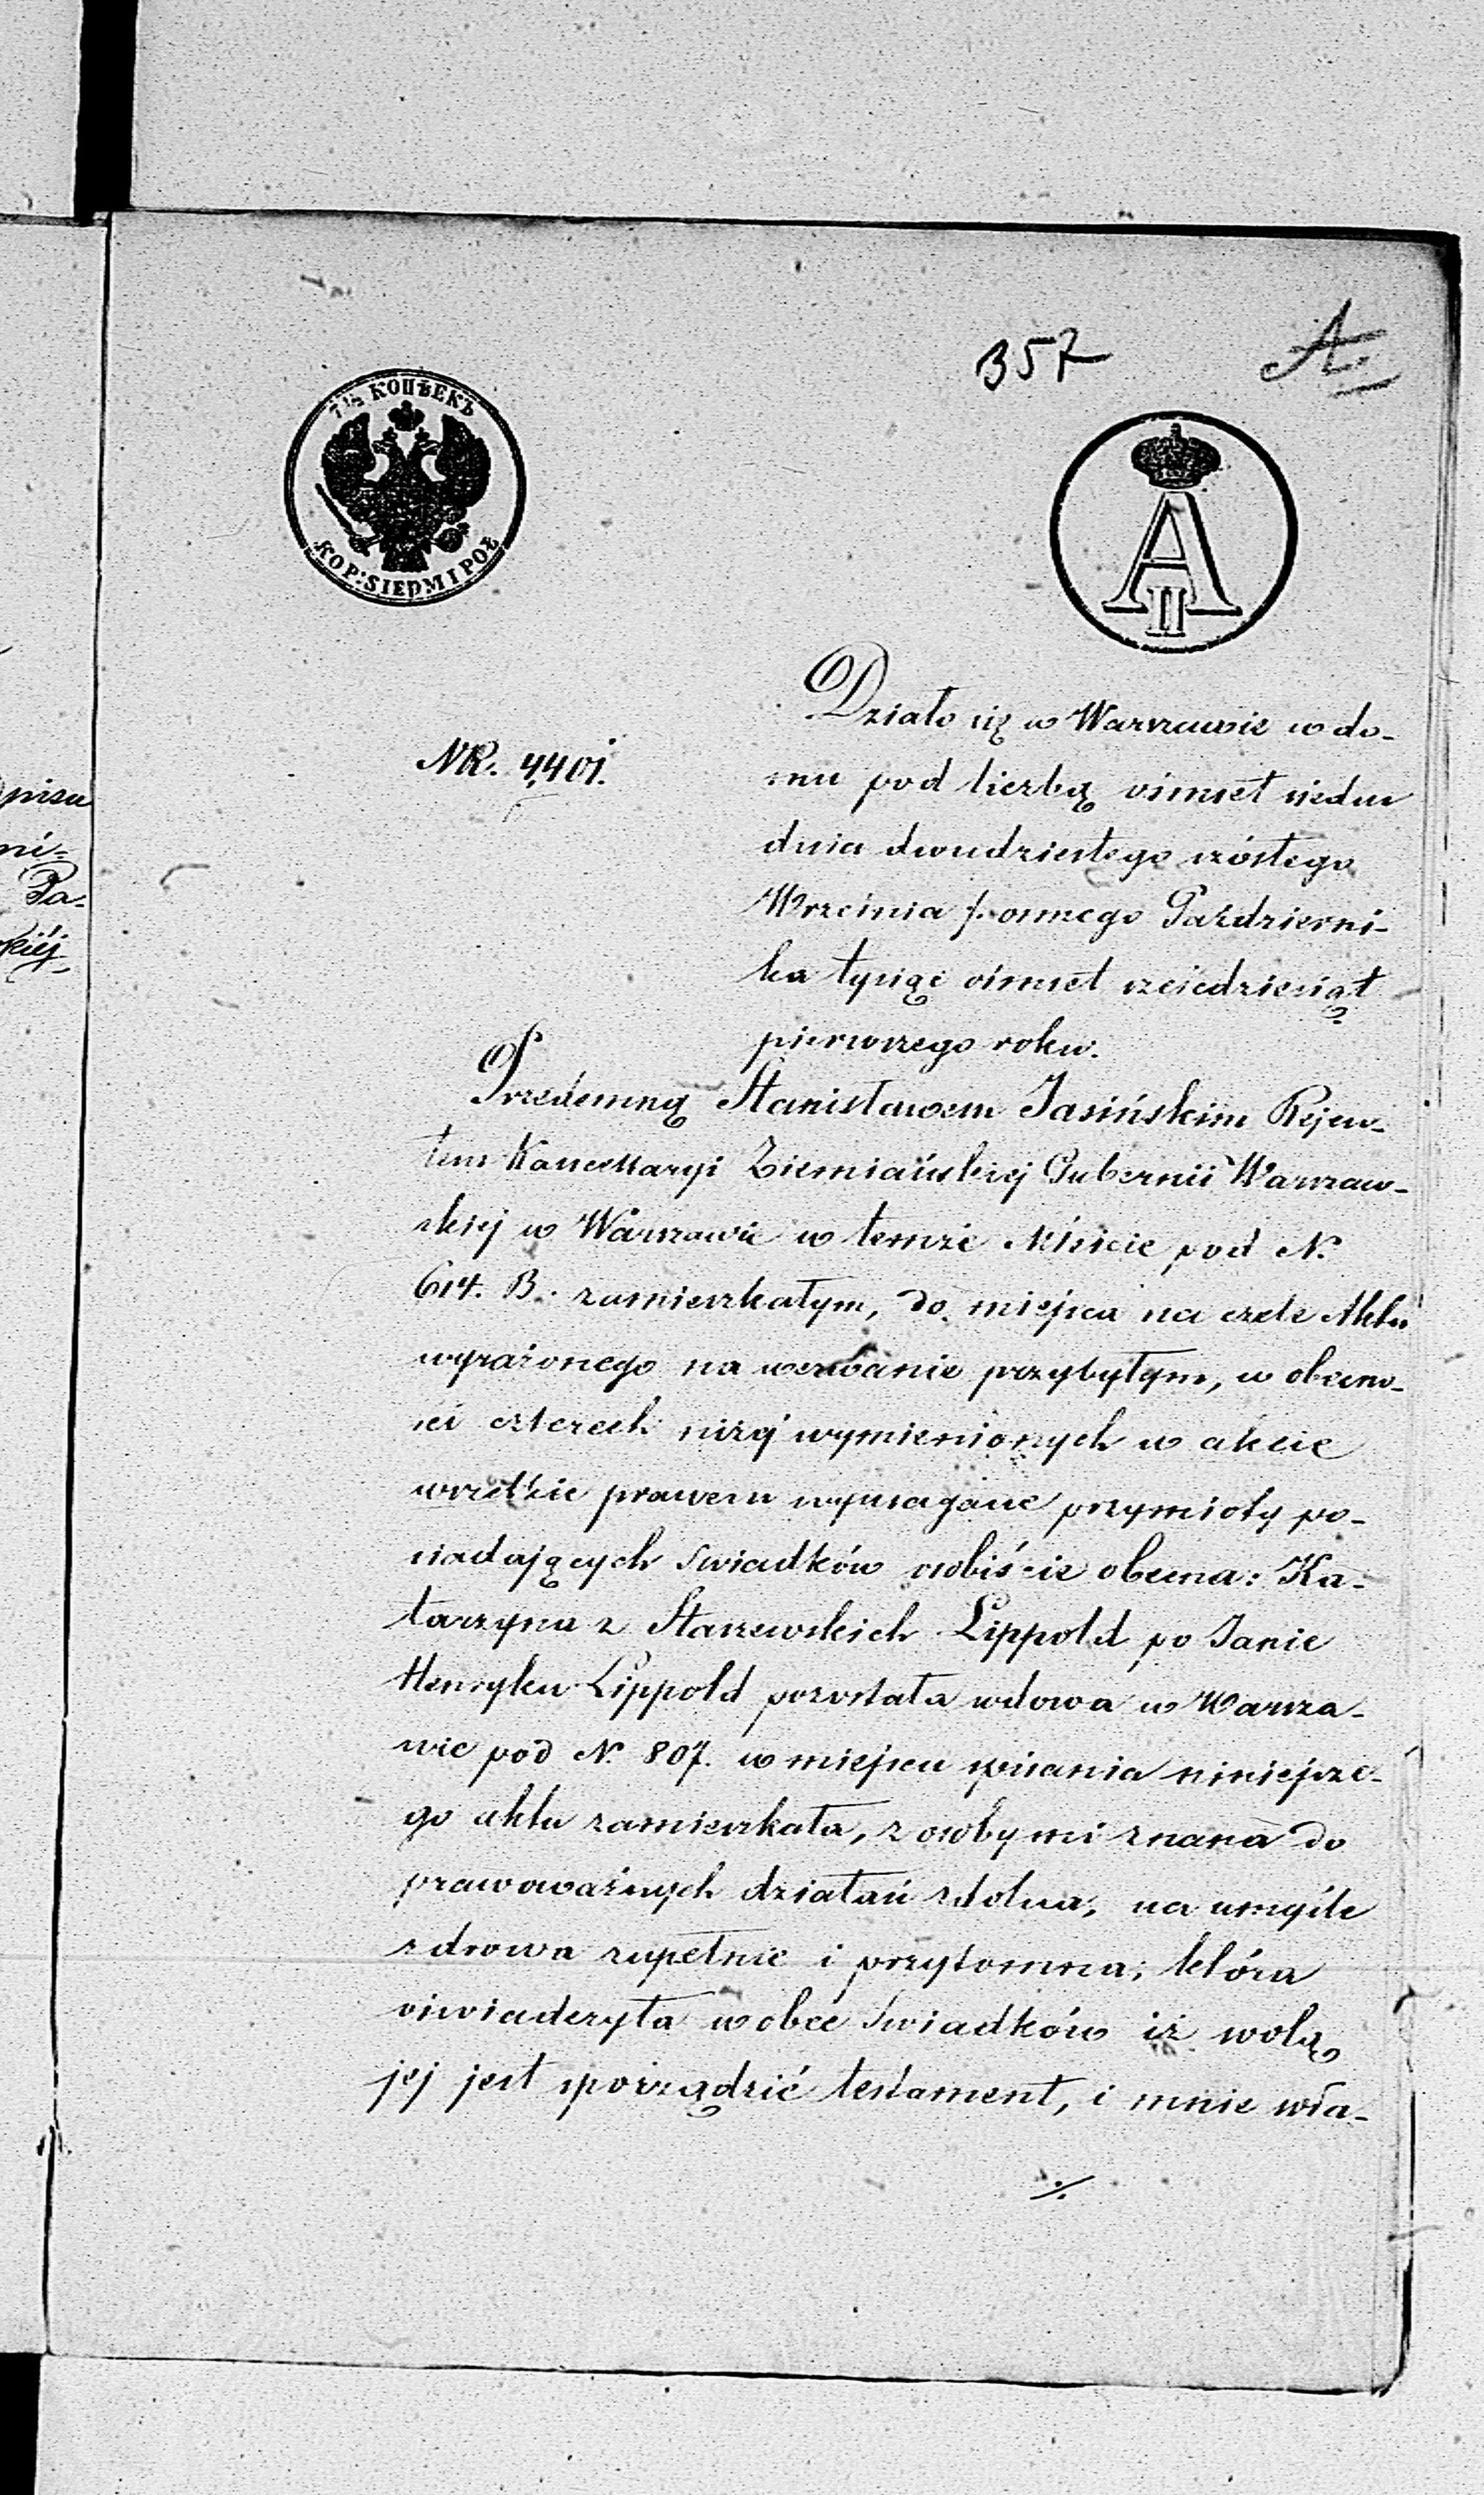 pisu
ni=
Pa-
kiéj
357 A.
7½ КОПѢЕКЪ
KOP: SIEDM I POŁ
A
II
NR. 4401.
Działo się w Warszawie w do-
mu pod liczbą ośmset siedm
dnia dwudziestego szóstego
Września /:osmego Październi-
ka tysiąc ośmset sześćdziesiąt
pierwszego roku.
Przedemną Stanisławem Jasińskim Rejen-
tem Kancellaryi Ziemiańskiej Gubernii Warszaw-
skiej w Warszawie w temże Mieście pod N.
614. B. zamieszkałym, do miejsca na czele Aktu
wyrażonego na wezwanie przybyłym, w obecno-
ści czterech niżej wymienionych w akcie
wszelkie prawem wymagane przymioty po-
siadających świadków osobiście obecna: Ka-
tarzyna z Staszewskich Lippold po Janie
Henryku Lippold pozostała wdowa w Warsza-
wie pod N. 807. w miejscu spisania niniejsze-
go aktu zamieszkała, z osoby mi znana do
prawoważnych działań zdolna, na umyśle
zdrowa zupełnie i przytomna; która
oświadczyła wobec świadków iż wolą
jej jest sporządzić testament, i mnie wła-
./.